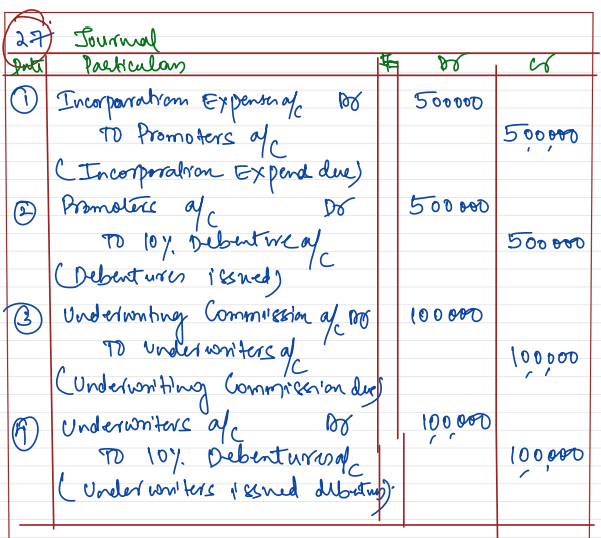 27 Journal
Date Particulars Dr Cr
① Incorporation Expenses a/c Dr 500000
To Promoters a/c 500,000
(Incorporation Expend due)
② Promoters a/c Dr 500000
To 10% Debenture a/c 500000
(Debentures issued)
③ Underwriting Commission a/c Dr 100000
To underwriters a/c 100,000
(Underwriting Commission due)
④ Underwriters a/c Dr 100,000
To 10% Debentures a/c 100,000
(Underwriters issued debentures).